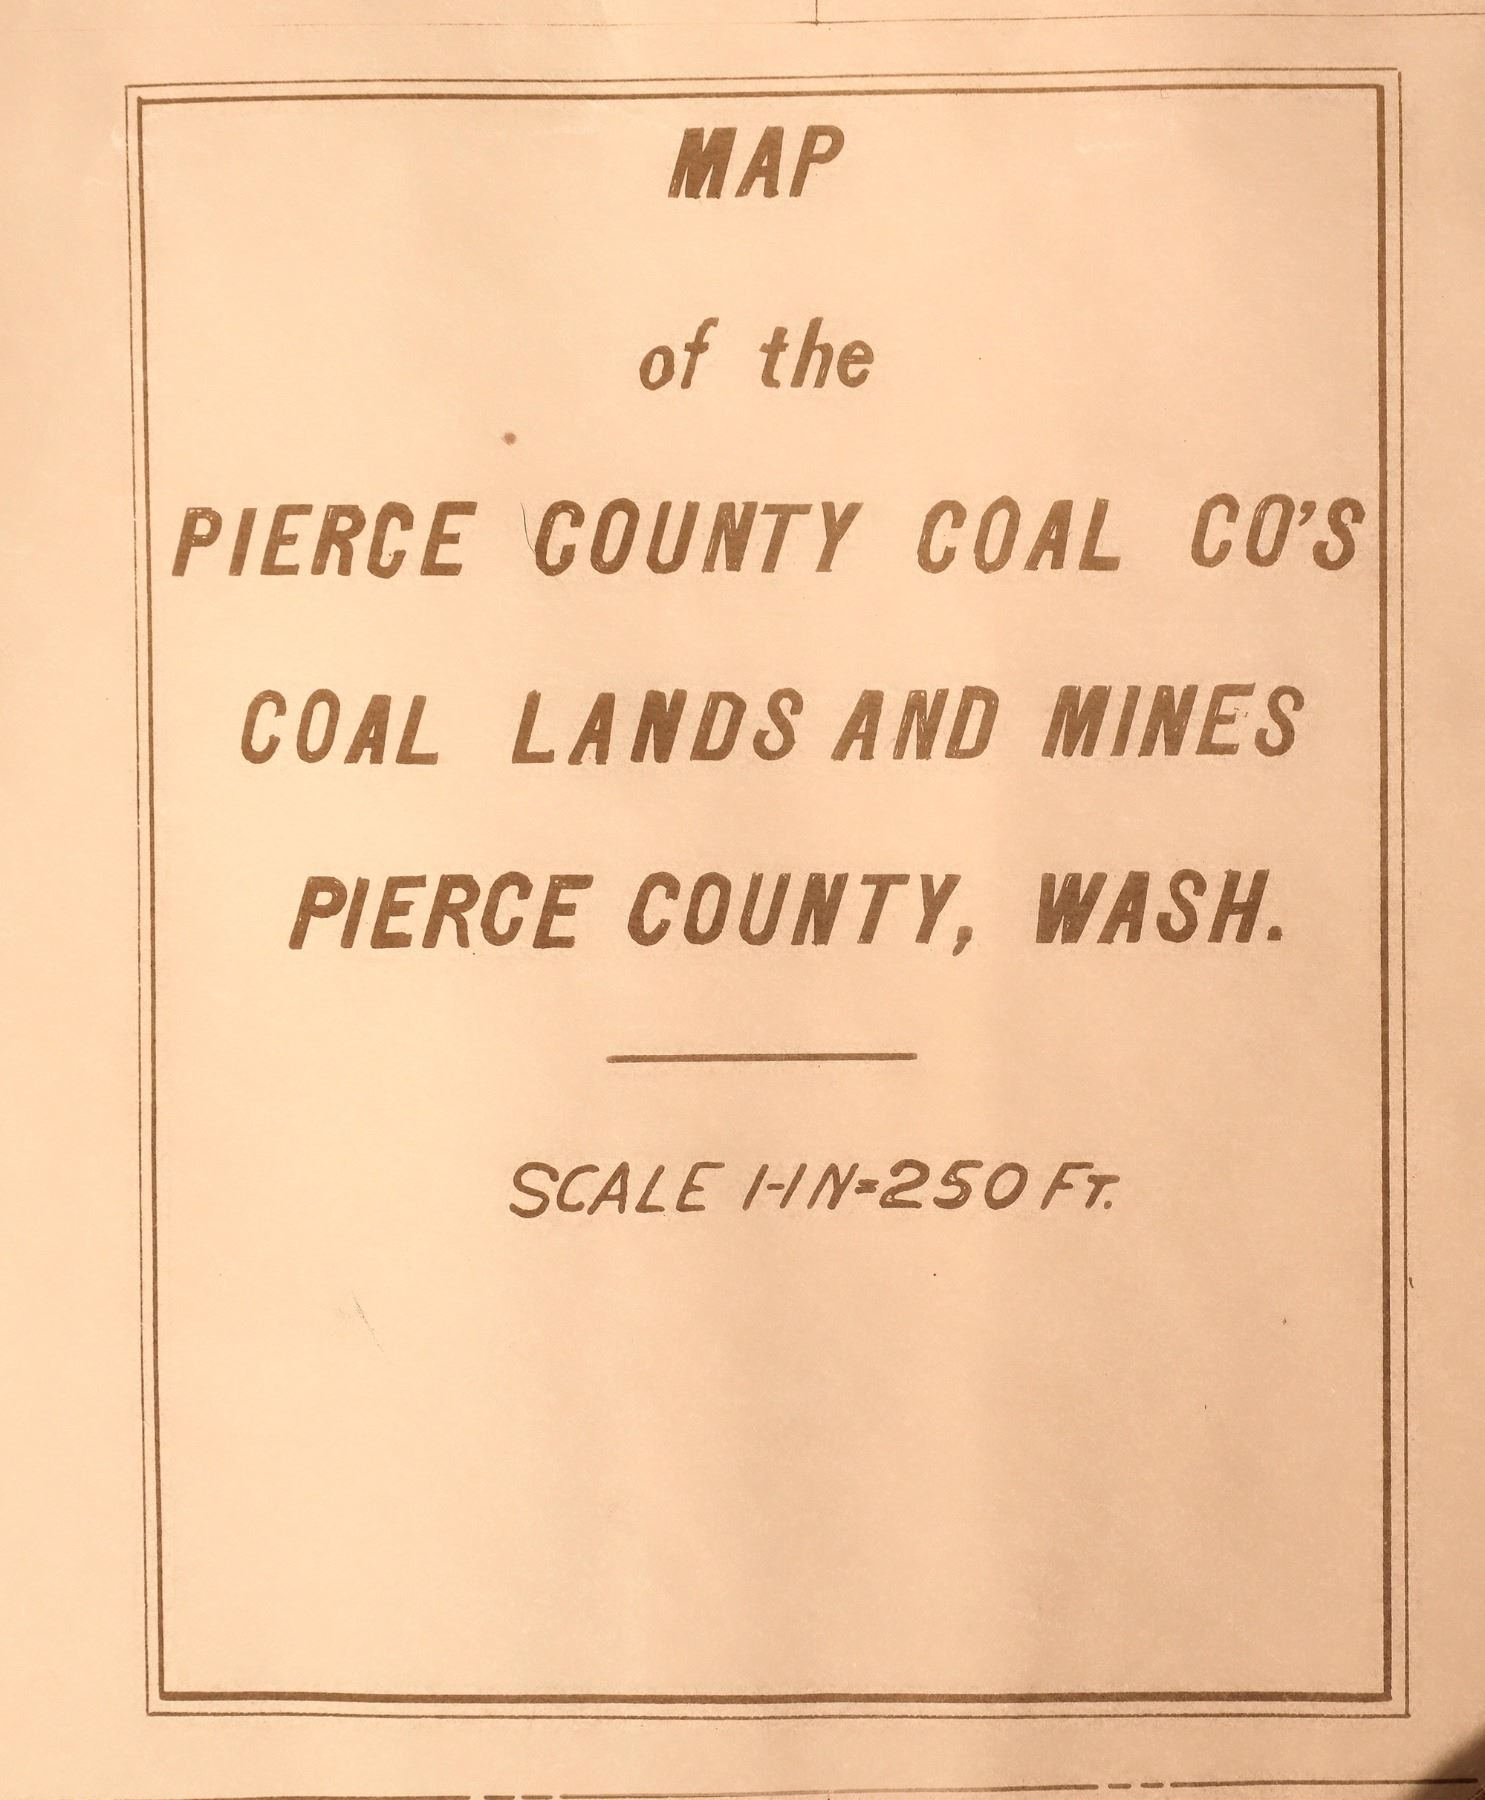 MAP
of the
PIERCE COUNTY COAL CO'S
COAL LANDS AND MINES
PIERCE COUNTY, WASH.
SCALE 1-IN=250 FT.